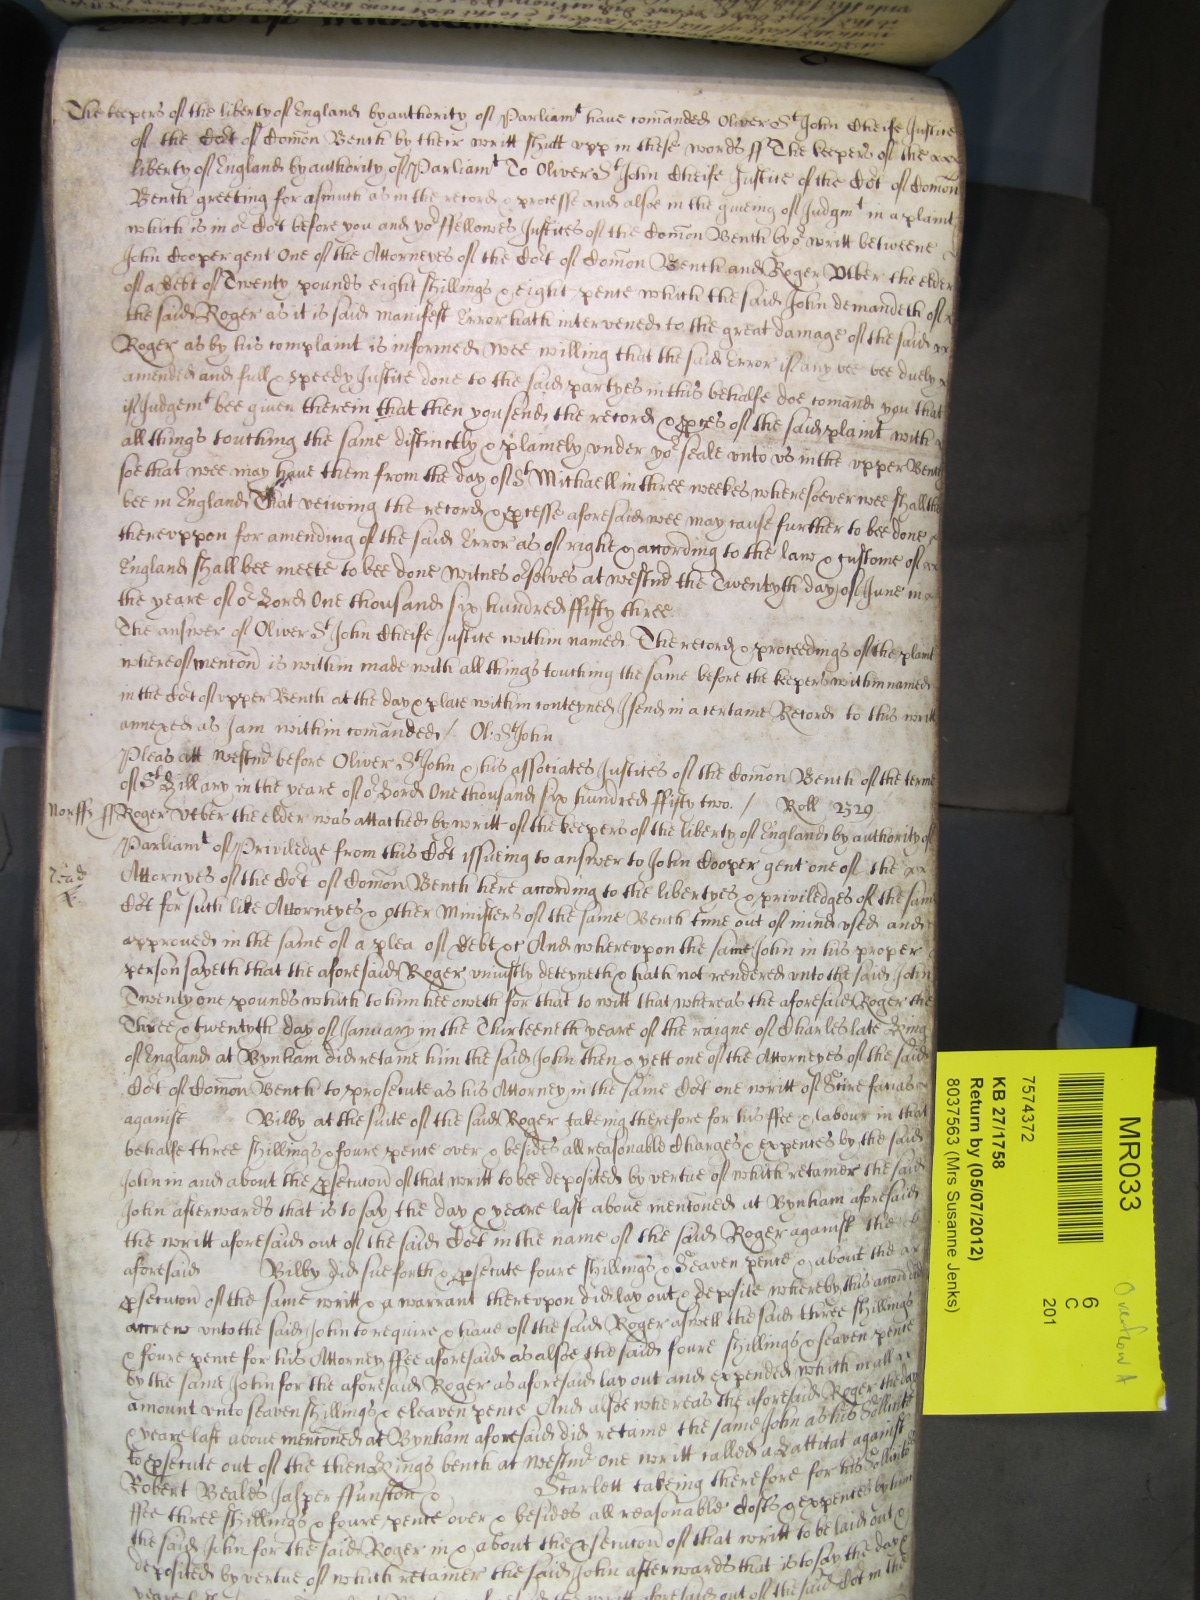 The keepers of the liberty of England by authority of Parliamt have comanded Oliver St John Cheife Justice
of the Cort of Comon Bench by their writt shutt vpp in these words ss The keepers of the
liberty of England by authority of Parliamt To Oliver St John Cheife Justice of the Cort of Comon
Bench greeting for asmuch as in the record & processe and alsoe in the giueing of Judgmt in a plaint
which is in or Cort before you and yor ffellowes Justices of the Comon Bench by or writt betweene
John Cooper gent One of the Attorneyes of the Cort of Comon Bench and Roger Vtber the elder
of a debt of Twenty pounds eight shillings & eight pence which the said John demandeth of
the said Roger as it is said manifest Error hath intervened to the great damage of the said
Roger as by his complaint is informed wee willing that the said Error if any bee bee duely
amended and full & speedy Justice done to the said partyes in this behalfe doe comand you that
if Judgemt bee given therein that then you send the record & pces of the said plaint with
all things touching the same distinctly & plainely vnder yor seale vnto vs in the vpper Bench
soe that wee may haue them from the day of St Michaell in three weekes wheresoever wee shall then
bee in England That veiwing the record & pcesse aforesaid wee may cause further to bee done
therevppon for amending of the said Error as of right & according to the law & custome of
England shall bee meete to bee done Witnes orselves at Westmr the Twentyth day of June in
the yeare of or Lord One thousand six hundred ffifty three.
The answer of Oliver St John Cheife Justice within named The record & proceedings of the plaint
whereof mencon is within made with all things touching the same before the keepers within named
in the Cort of vpper Bench at the day & place within conteyned I send in a certaine Record to this writt
annexed as I am within comanded / Ol: St John
Pleas att Westmr before Oliver St John & his associates Justices of the Comon Bench of the terme
of St Hillary in the yeare of or Lord One thousand six hundred ffifty two. / Roll 2329
Norff ss Roger Vtber the elder was attached by writt of the keepers of the liberty of England by authority of
Parliamt of Priviledge from this Cort issueing to answer to John Cooper gent one of the
Attornyes of the Cort of Comon Bench here according to the libertyes & priviledges of the same
Cort for such like Attorneyes & other Ministers of the same Bench time out of mind vsed and
approued in the same of a plea of debt &c And wherevpon the same John in his proper
person sayeth that the aforesaid Roger vniustly deteyneth & hath not rendered vnto the said John
Twenty one pounds which to him hee oweth for that to witt that whereas the aforesaid Roger the
Three & twentyth day of January in the Thirteeneth yeare of the raigne of Charles late King
of England at Bynham did retaine him the said John then & yett one of the Attorneyes of the said
Cort of Comon Bench to prosecute as his Attorney in the same Cort one writt of Scire facias
against Bilby at the suite of the said Roger takeing therefore for his ffee & labour in that
behalfe three shillings & foure pence over & besides all reasonable Charges & expences by the said
John in and about the psecucon of that writt to bee deposited by vertue of which retainer the said
John afterwards that is to say the day & yeare last aboue mentoned at Bynham aforesaid
the writt aforesaid out of the said Cort in the name of the said Roger against the
aforesaid Bilby did sue forth & psecute foure shillings & seaven pence & about the
psecucon of the same writt & a warrant therevpon did lay out & deposite whereby this accon did
accrew vnto the said John to require & haue of the said Roger aswell the said three shillings
& foure pence for his Attorney ffee aforesaid as alsoe the said foure shillings & seaven pence
by the same John for the aforesaid Roger as aforesaid lay out and expended which in all
amount vnto seaven shillings & eleaven pence And alsoe whereas the aforesaid Roger the day
& yeare last aboue mentoned at Bynham aforesaid did retaine the same John as his Sollicitr
to psecute out of the then Kings bench at Westmr one writt called a Lattitat against
Robert Beales Jasper ffunston & Scarlett takeing therefore for his Sollicitr
ffee three shillings & foure pence over & besides all reasonable Costs & expences by him
the said John for the said Roger in & about the psecucon of that writt to be laid out &
deposited by vertue of which retainer the said John afterwards that is to say the day &
MR033
6
C
201
Overflow A
7574372
KB 27/1758
Return by (05/07/2012)
8037563 (Mrs Susanne Jenks)